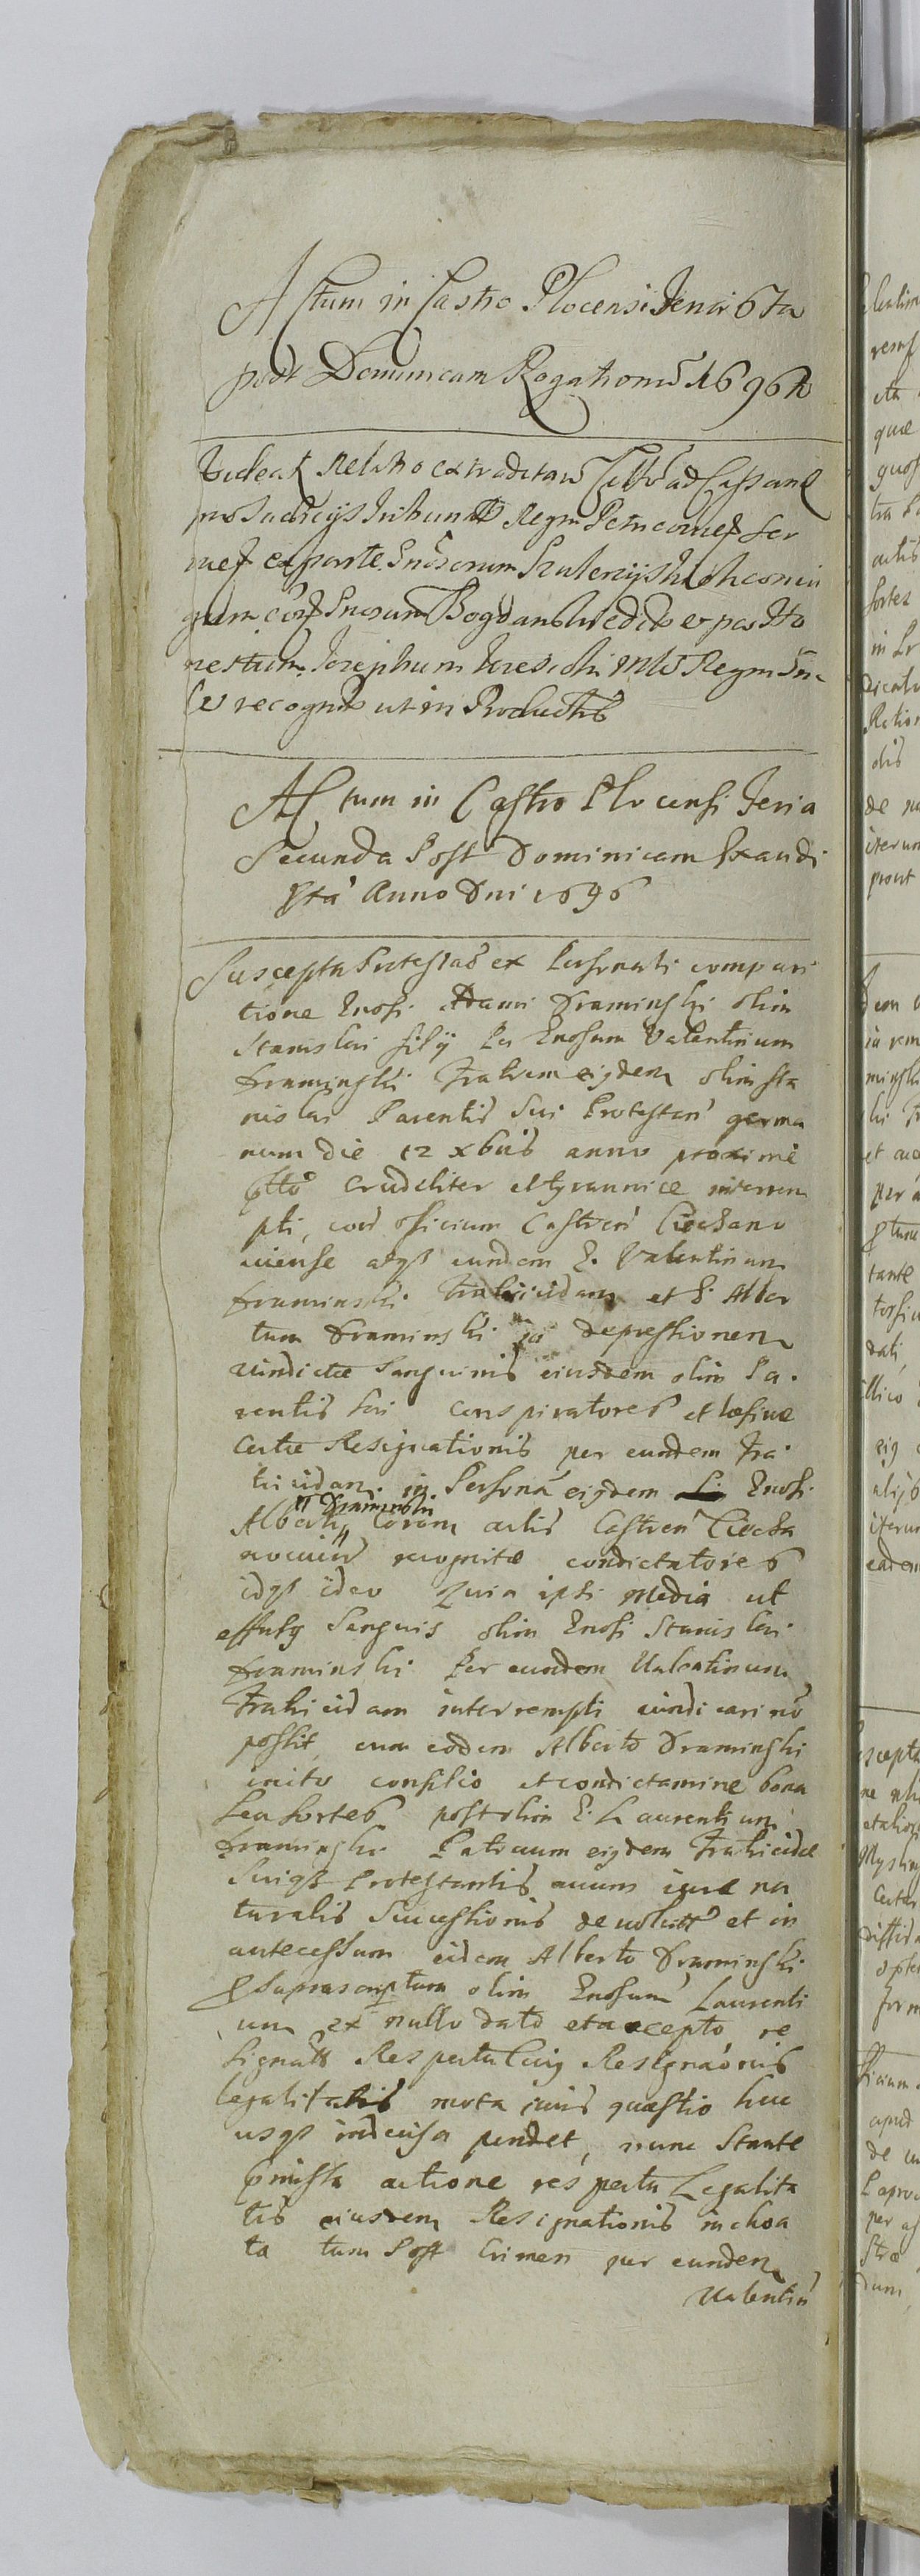 Actum in Castro Plocensi Feria 6ta
post Dominicam Rogationũ 1696to
Videat Relatio extraditarũ
pro Judicijs Tribunal Regni
ex parte
Bogdanski edicto et pos Ho
nestum Josephum Mlis Regni
recognit ut in Productis
Actum in Castro Plocensi Feria
Secunda Post Dominicam Exaudi
Anno Dni 1696
Suscepta Protestaõ ex Personali compari
tione Gnosi Adami Draminski olim
Stanislai filij Per Gnosum Valentinum
Draminski Fratrem eigdem olim Sta
nislai Parentis Sui Protestan germa
num die 12 xbris anno proxime
ptto crudeliter et tyrannice interrem
pti, cor officium Castren Ciechano
viense atqs eundem G. Valentinum
Draminski Fratricidam et G. Alber
tum Draminski in depressionem
vindictæ Sanguinis eiusdem olim Pa
rentis Sui conspiratores et læsivæ
certæ Resignationis per eundem Fra
tricidam in Persona eigdem Gnosi
Alberti Draminski Coram actis Castren Ciecha
novien recognitæ condictatores
idqs ideo Quia ipsi media ut
effusg Sangvis olim Gnosi Stanislai
Draminski Per eundem Valentinum
Fratricidam interrempti vindicari nõ
possit, cum eodem Alberto Draminski
inito consilio et condictamine bona
Seu Sortes post olim G. Laurentium
Draminski Patruum eigdem Fratricidæ
Suiqs Protestantis avum iure na
turalis Successionis devolut et in
antecessum eidem Alberto Draminski
p Suprascriptum olim Gnosum Laurenti
um ex nullo dato et accepto re
signatt Respectu cuig Resignaõnis
legalitatis mota iuris quæstio huc
usqs indecisa pendet, nunc Stante
pmissa actione respectu Legalita
tis eiusdem Resignationis inchoa
ta tum Post Crimen per eundem
Valentin